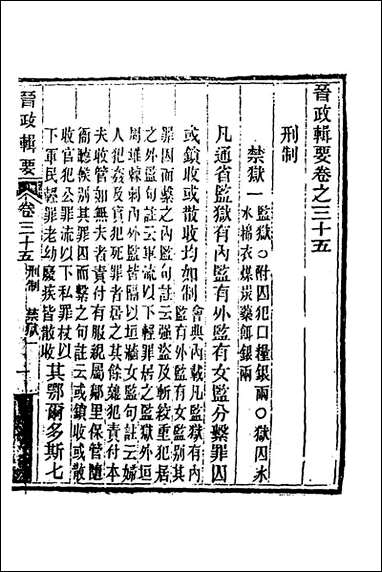 晉政輯要卷之三十五
刑制
禁獄一
監獄○附囚犯口糧銀兩○獄囚氷
水棉衣煤炭藥餌銀兩
凡通省監獄有內監有外監有女監分繫罪囚
或鎖收或散收均如制
會典內載凡監獄有內
監有外監有女監別其
罪囚而繫之內監句註云強盜及斬絞重犯居
之外監句註云軍流以下輕罪居之監獄外垣
周棘刺內外監皆臨以垣牆女監句註云婦
人犯姦及實犯死罪者居之其餘雜犯責付本
夫收管如無夫者責付有服親屬鄰里保管隨
衙聽候別其罪囚而繫之句註云或鎖收或散
收官犯公罪流以下私罪杖以
下軍民輕罪老幼廢疾皆散收
其鄂爾多斯七
晉政輯要
卷三十五
刑制
禁獄一
一